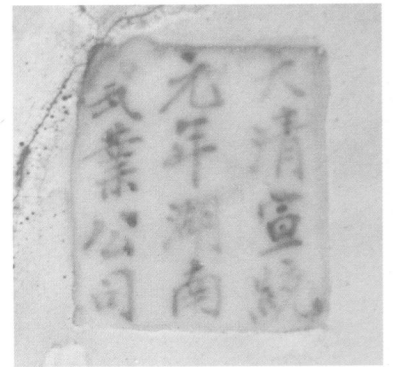 大清宣統
元年湖南
瓷業公司